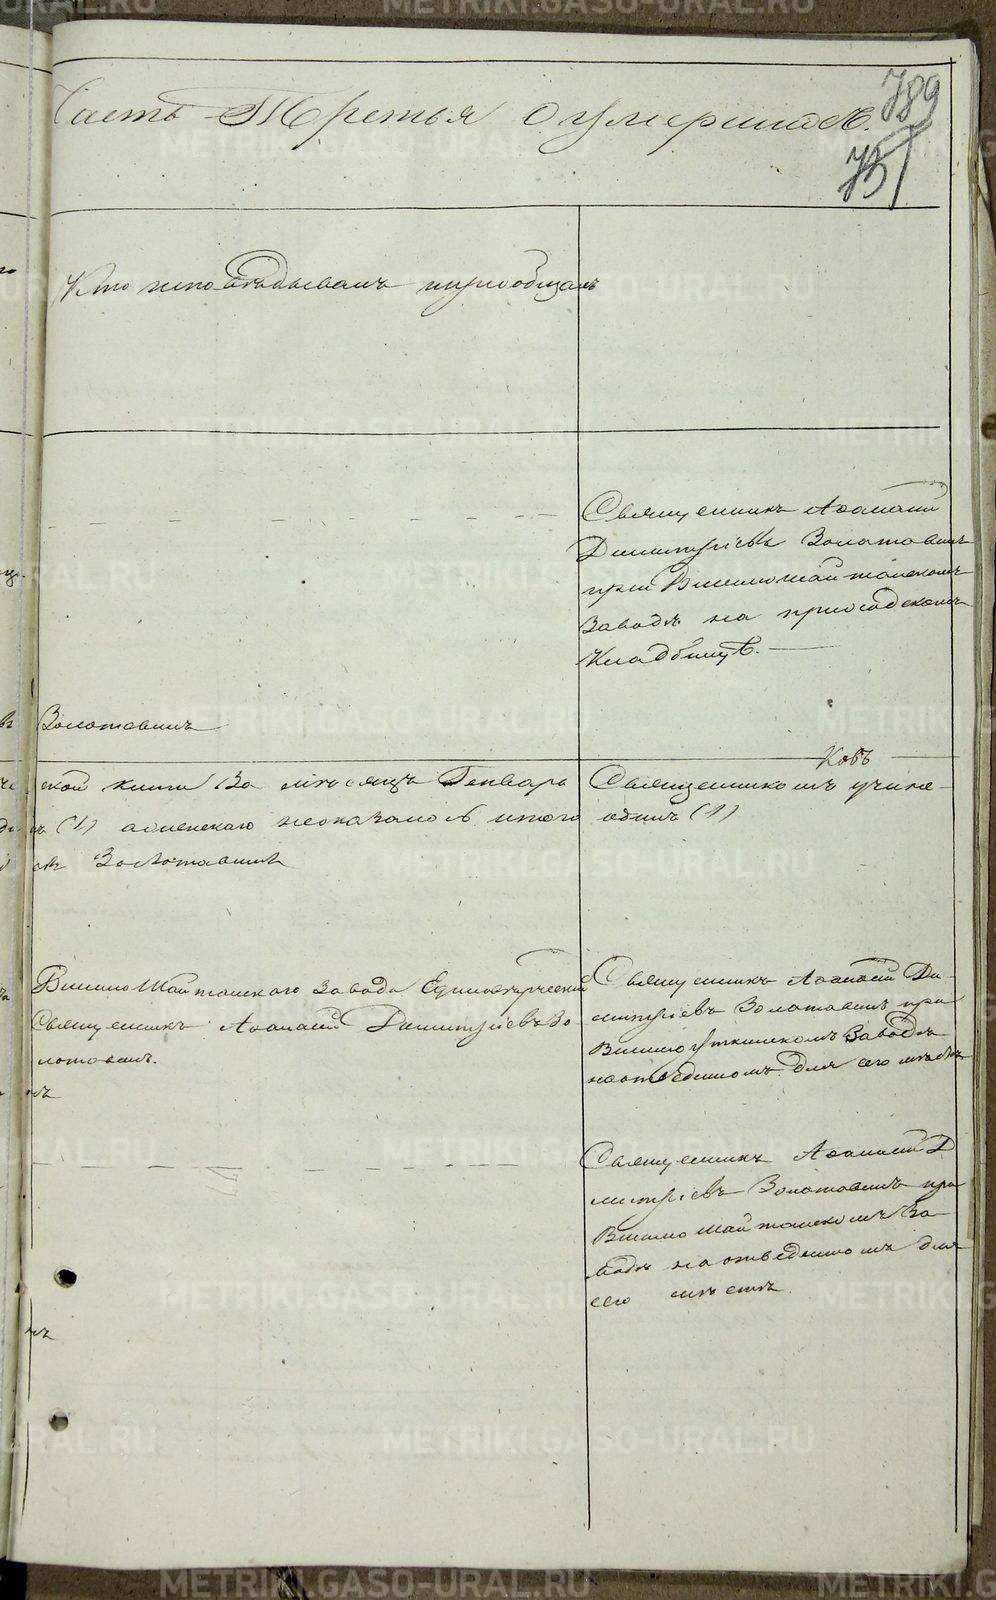 789
Часть Третья о умершихъ.
731
Кто исповѣдывалъ и приобщалъ
Священникъ Аѳанасій
Димитріевъ Золотавинъ
при Висимошайтанскомъ
Заводѣ на приходскомъ
Кладбищѣ.
Золотавинъ
ской книги За мѣсяцъ Генварь
(1) а женскаго неоказалось итого
Золотавинъ
ковъ
Священникомъ учине-
одинъ (1)
Висимо Шайтанскаго Завода Единовѣрческій
Священникъ Аѳанасій Димитріевъ Зо-
лотавинъ.
Священникъ Аѳанасій Ди-
митріевъ Золотавинъ при
Висимоуткинскомъ Заводѣ
на отведенномъ для сего мѣстѣ
Священникъ Аѳанасій Д
митріевъ Золотавинъ при
Висимо шайтанскомъ За-
водѣ на отведенномъ для
сего мѣстѣ.
METRIKI.GASO-URAL.RU